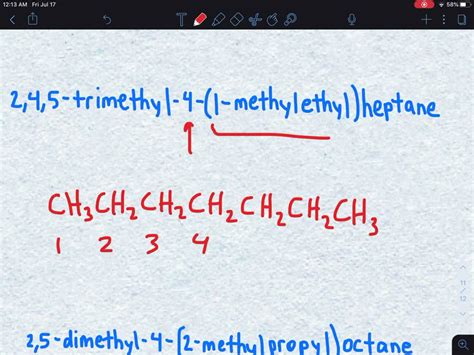 12:13 AM Fri Jul 17
58%
2,4,5-trimethyl-4-(1-methylethyl)heptane
CH₃CH₂CH₂CH₂CH₂CH₂CH₃
1 2 3 4
11
12
2,5-dimethyl-4-(2-methylpropyl)octane